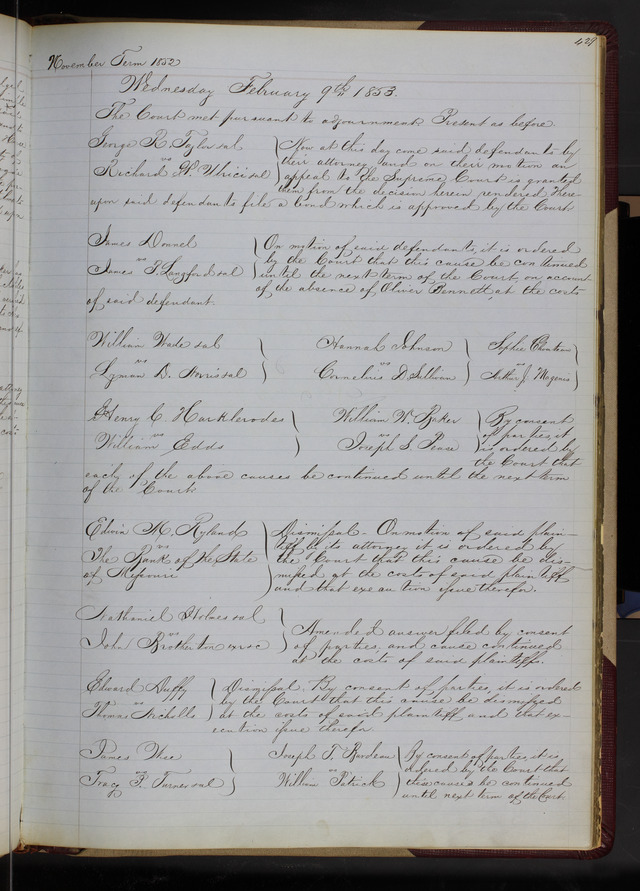 429
November Term 1852
Wednesday February 9th 1853.
The Court met pursuant to adjournment. Present as before.
George R. Taylor et al
vs
Richard W. Ulrici et al
Now at this day come said defendants by
their attorney and on their motion an
appeal to the Supreme Court is granted
them from the decision herein rendered. There-
upon said defendants file a bond which is approved by the Court
James Donnel
vs
James T. Langford et al
On motion of said defendants, it is ordered
by the Court that this cause be continued
until the next term of the Court, on account
of the absence of Oliver Bennett, at the costs
of said defendant.
William Wade et al
vs
Lyman D. Norris et al
Hannah Johnson
vs
Cornelius D. Sullivan
Sophie Chouteau
vs
Arthur J. Magenis
Henry C. Harklerodes
vs
William Edds
William W. Baker
vs
Joseph S. Pease
By consent
of parties, it
is ordered by
the Court that
each of the above causes be continued until the next term
of the Court.
Edwin M. Ryland
vs
The Bank of the State
of Missouri
Dismissal - On motion of said plain-
tiff by its attorney it is ordered by
the Court that this cause be dis-
missed at the costs of said plaintiff
and that execution issue therefor.
Nathaniel Holmes et al
vs
John Brotherton exr &c
Amended answer filed by consent
of parties, and cause continued
at the costs of said plaintiffs.
Edward Duffy
vs
Thomas Nicholls
Dismissal. By consent of parties, it is ordered
by the Court that this cause be dismissed
at the costs of said plaintiff and that ex-
ecution issue therefor
James Wee
vs
Tracy R. Turner et al
Joseph T. Burdeau
vs
William Patrick
By consent of parties, it is
ordered by the Court that
these causes be continued
until next term of the Court.